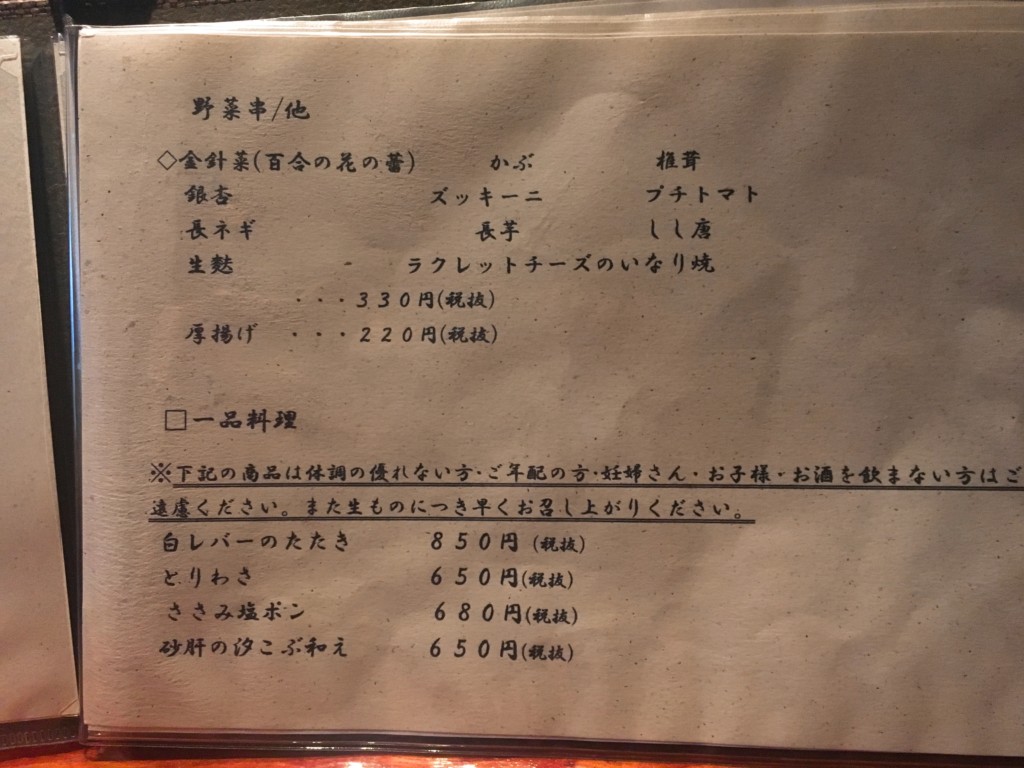 野菜串/他
◇金針菜(百合の花の蕾) かぶ 椎茸
銀杏 ズッキーニ プチトマト
長ネギ 長芋 しし唐
生麩 ラクレットチーズのいなり焼
・・・330円(税抜)
厚揚げ ・・・220円(税抜)
□一品料理
※下記の商品は体調の優れない方・ご年配の方・妊婦さん・お子様・お酒を飲まない方はご
遠慮ください。また生ものにつき早くお召し上がりください。
白レバーのたたき 850円(税抜)
とりわさ 650円(税抜)
ささみ塩ポン 680円(税抜)
砂肝の汐こぶ和え 650円(税抜)